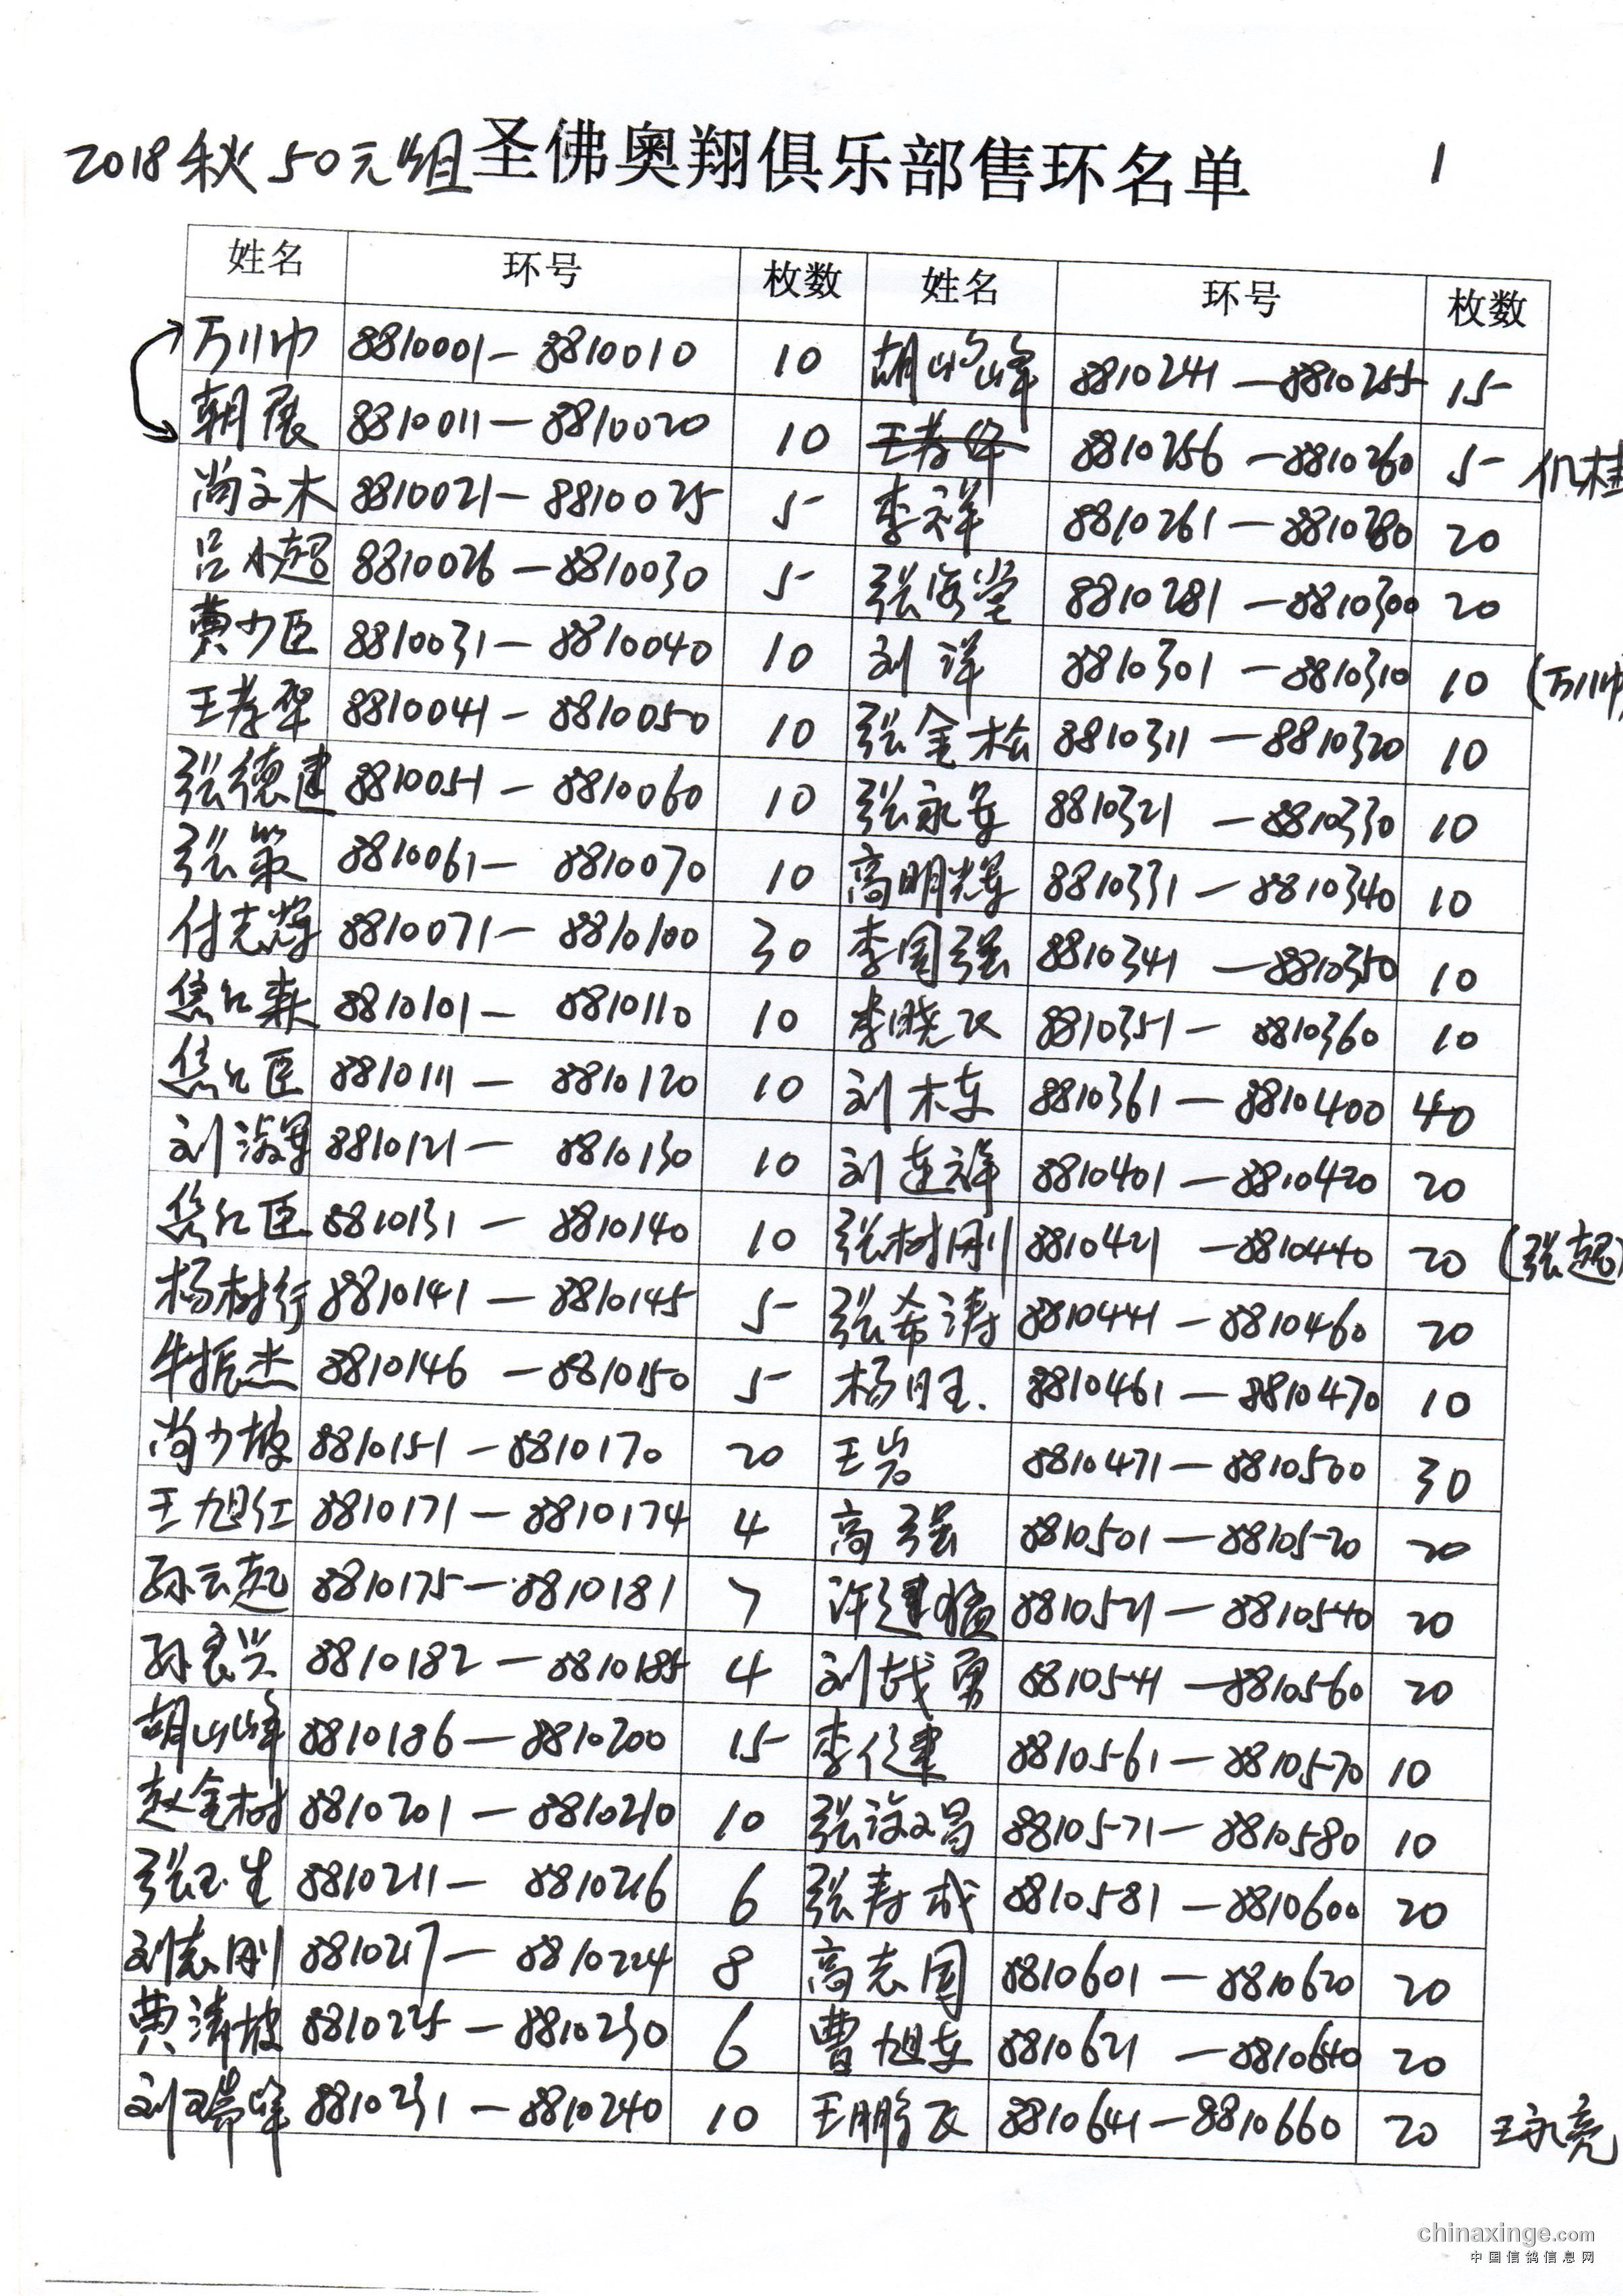 2018秋50元组圣佛奥翔俱乐部售环名单 1
姓名 环号 枚数 姓名 环号 枚数
万川巾 8810001— 8810010 10 胡山峰 8810241 —8810255 15
朝展 8810011— 8810020 10 王孝华 8810256 —8810260 5
尚文木 8810021— 8810025 5 李祥 8810261—8810280 20
吕小超 8810026 —8810030 5 张海堂 8810281 —8810300 20
贾少臣 8810031— 8810040 10 刘洋 8810301 —8810310 10 (万川巾)
王孝华 8810041— 8810050 10 张金松 8810311 —8810320 10
张德建 8810051— 8810060 10 张永军 8810321 —8810330 10
张策 8810061— 8810070 10 高明辉 8810331 —8810340 10
付志辉 8810071— 8810100 30 李国强 8810341 —8810350 10
8810101— 8810110 10 李晓双 8810351— 8810360 10
8810111 — 8810120 10 刘木东 8810361—8810400 40
刘淑军 8810121— 8810130 10 刘连祥 8810401 —8810420 20
8810131 — 8810140 10 张树刚 8810421 —8810440 20 (张超)
杨树行 8810141 — 8810145 5 张希涛 8810441 —8810460 20
牛振杰 8810146 —8810150 5 杨旺 8810461 — 8810470 10
尚少坡 8810151 —8810170 20 王岩 8810471—8810500 30
王旭红 8810171—8810174 4 高强 8810501—8810520 20
孙云起 8810175—8810181 7 许建猛 8810521—8810540 20
孙良兴 8810182 —8810185 4 刘战勇 8810541 —8810560 20
胡山峰 8810186—8810200 15 李亿建 8810561—8810570 10
赵金树 8810201 —8810210 10 8810571—8810580 10
张玉生 8810211— 8810216 6 张寿成 8810581 —8810600 20
刘志刚 8810217— 8810224 8 高志国 8810601 —8810620 20
贾涛坡 8810225 —8810230 6 曹旭东 8810621 —8810640 20
刘瑞峰 8810231 —8810240 10 王鹏飞 8810641—8810660 20 王永亮
chinaxinge.com
中国信鸽信息网